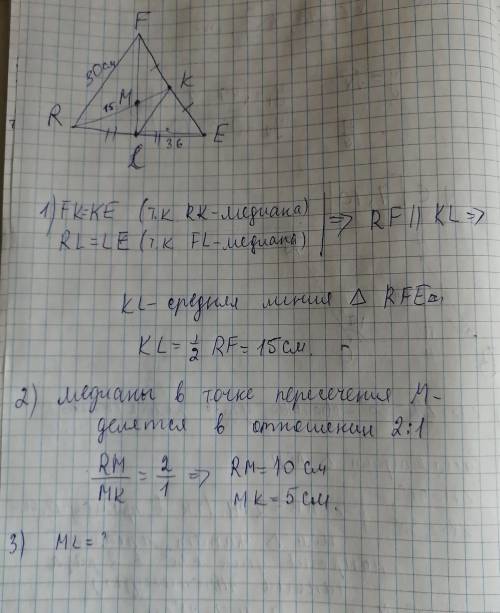 F
30см
K
M
15
R
L
36
E
1) FK=KE (т.к RK-медиана)
RL=LE (т.к FL-медианы)
=> RF || KL =>
KL- средняя линия △ RFE
KL = 1/2 RF = 15 см.
2) Медианы в точке пересечения М-
делятся в отношении 2:1
RM/MK = 2/1 => RM=10 см
MK=5см.
3) ML=?